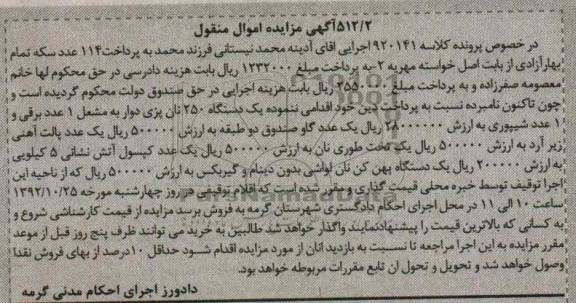 ۵۱۲/۲آگهی مزایده اموال منقول
در خصوص پرونده کلاسه ۹۲۰۱۴۱ اجرایی اقای آدینه محمد نیستانی فرزند محمد به پرداخت۱۱۴ عدد سکه تمام
بهارآزادی از بابت اصل خواسته مهریه ۲-به پرداخت مبلغ ۱۲۳۲۰۰۰ ریال بابت هزینه دادرسی در حق محکوم لها خانم
معصومه صفرزاده و به پرداخت مبلغ ۲۵۵۰۰۰۰ ریال بابت هزینه اجرایی در حق صندوق دولت محکوم گردیده است و
چون تاکنون نامبرده نسبت به پرداخت دین خود اقدامی ننموده یک دستگاه ۲۵۰ نان پزی دوار به مشعل ۱ عدد برقی و
۱ عدد شیپوری به ارزش ۲۸۰۰۰۰۰۰ ریال یک عدد گاو صندوق دو طبقه به ارزش ۵۰۰۰۰۰۰ ریال یک عدد پالت آهنی
زیر آرد به ارزش ۵۰۰۰۰۰ ریال یک تخت طوری نان به ارزش ۵۰۰۰۰۰ ریال یک عدد کپسول آتش نشانی ۵ کیلویی
به ارزش ۲۰۰۰۰۰ ریال یک دستگاه پهن کن نان لواشی بدون دینام و گیربکس به ارزش ۵۰۰۰۰۰۰ ریال که از ناحیه این
اجرا توقیف توسط خبره محلی قیمت گذاری و مقرر شده است که اقلام توقیفی در روز چهارشنبه مورخه ۱۳۹۲/۱۰/۲۵
ساعت ۱۰ الی ۱۱ در محل اجرای احکام دادگستری شهرستان گرمه به فروش برسد مزایده از قیمت کارشناشی شروع و
به کسانی که بالاترین قیمت را پیشنهادنمایند واگذار خواهد شد طالبین به خرید می توانند ظرف پنج روز قبل از موعد
مقرر مزایده به این اجرا مراجعه تا نسبت به بازدید انان از مورد مزایده اقدام شود حداقل ۱۰درصد از بهای فروش نقدا
وصول خواهد شد و تحویل و تحول ان تابع مقررات مربوطه خواهد بود.
دادورز اجرای احکام مدنی گرمه